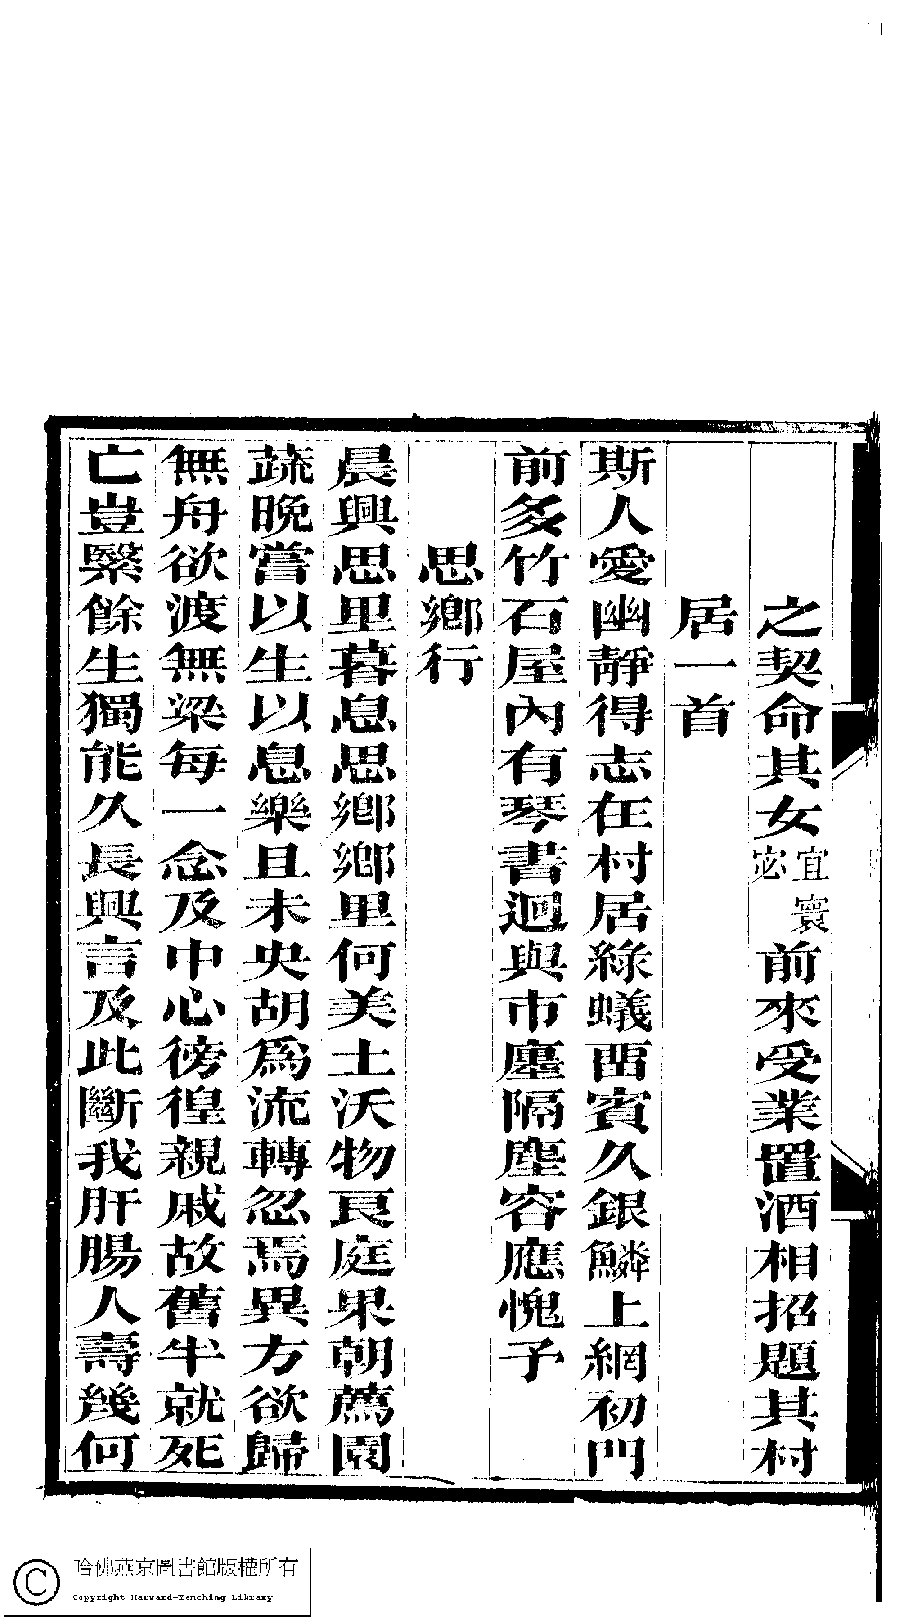 之契命其女宜寰宓前來受業置酒相招題其村
居一首
斯人愛幽靜得志在村居綠蟻酉賓久銀鱗上網初門
前多竹石屋內有琴書迴與市廛隔塵容應愧予
思鄉行
晨興思里暮息思鄉鄉里何美土沃物良庭果朝薦園
蔬晚嘗以生以息樂且未央胡爲流轉忽焉異方欲歸
無舟欲渡無梁每一念及中心徬徨親戚故舊半就死
亡豈繄餘生獨能久長興言及此斷我肝腸人壽幾何
哈佛燕京圖書館版權所有
Copyright Harvard-Yenching Library